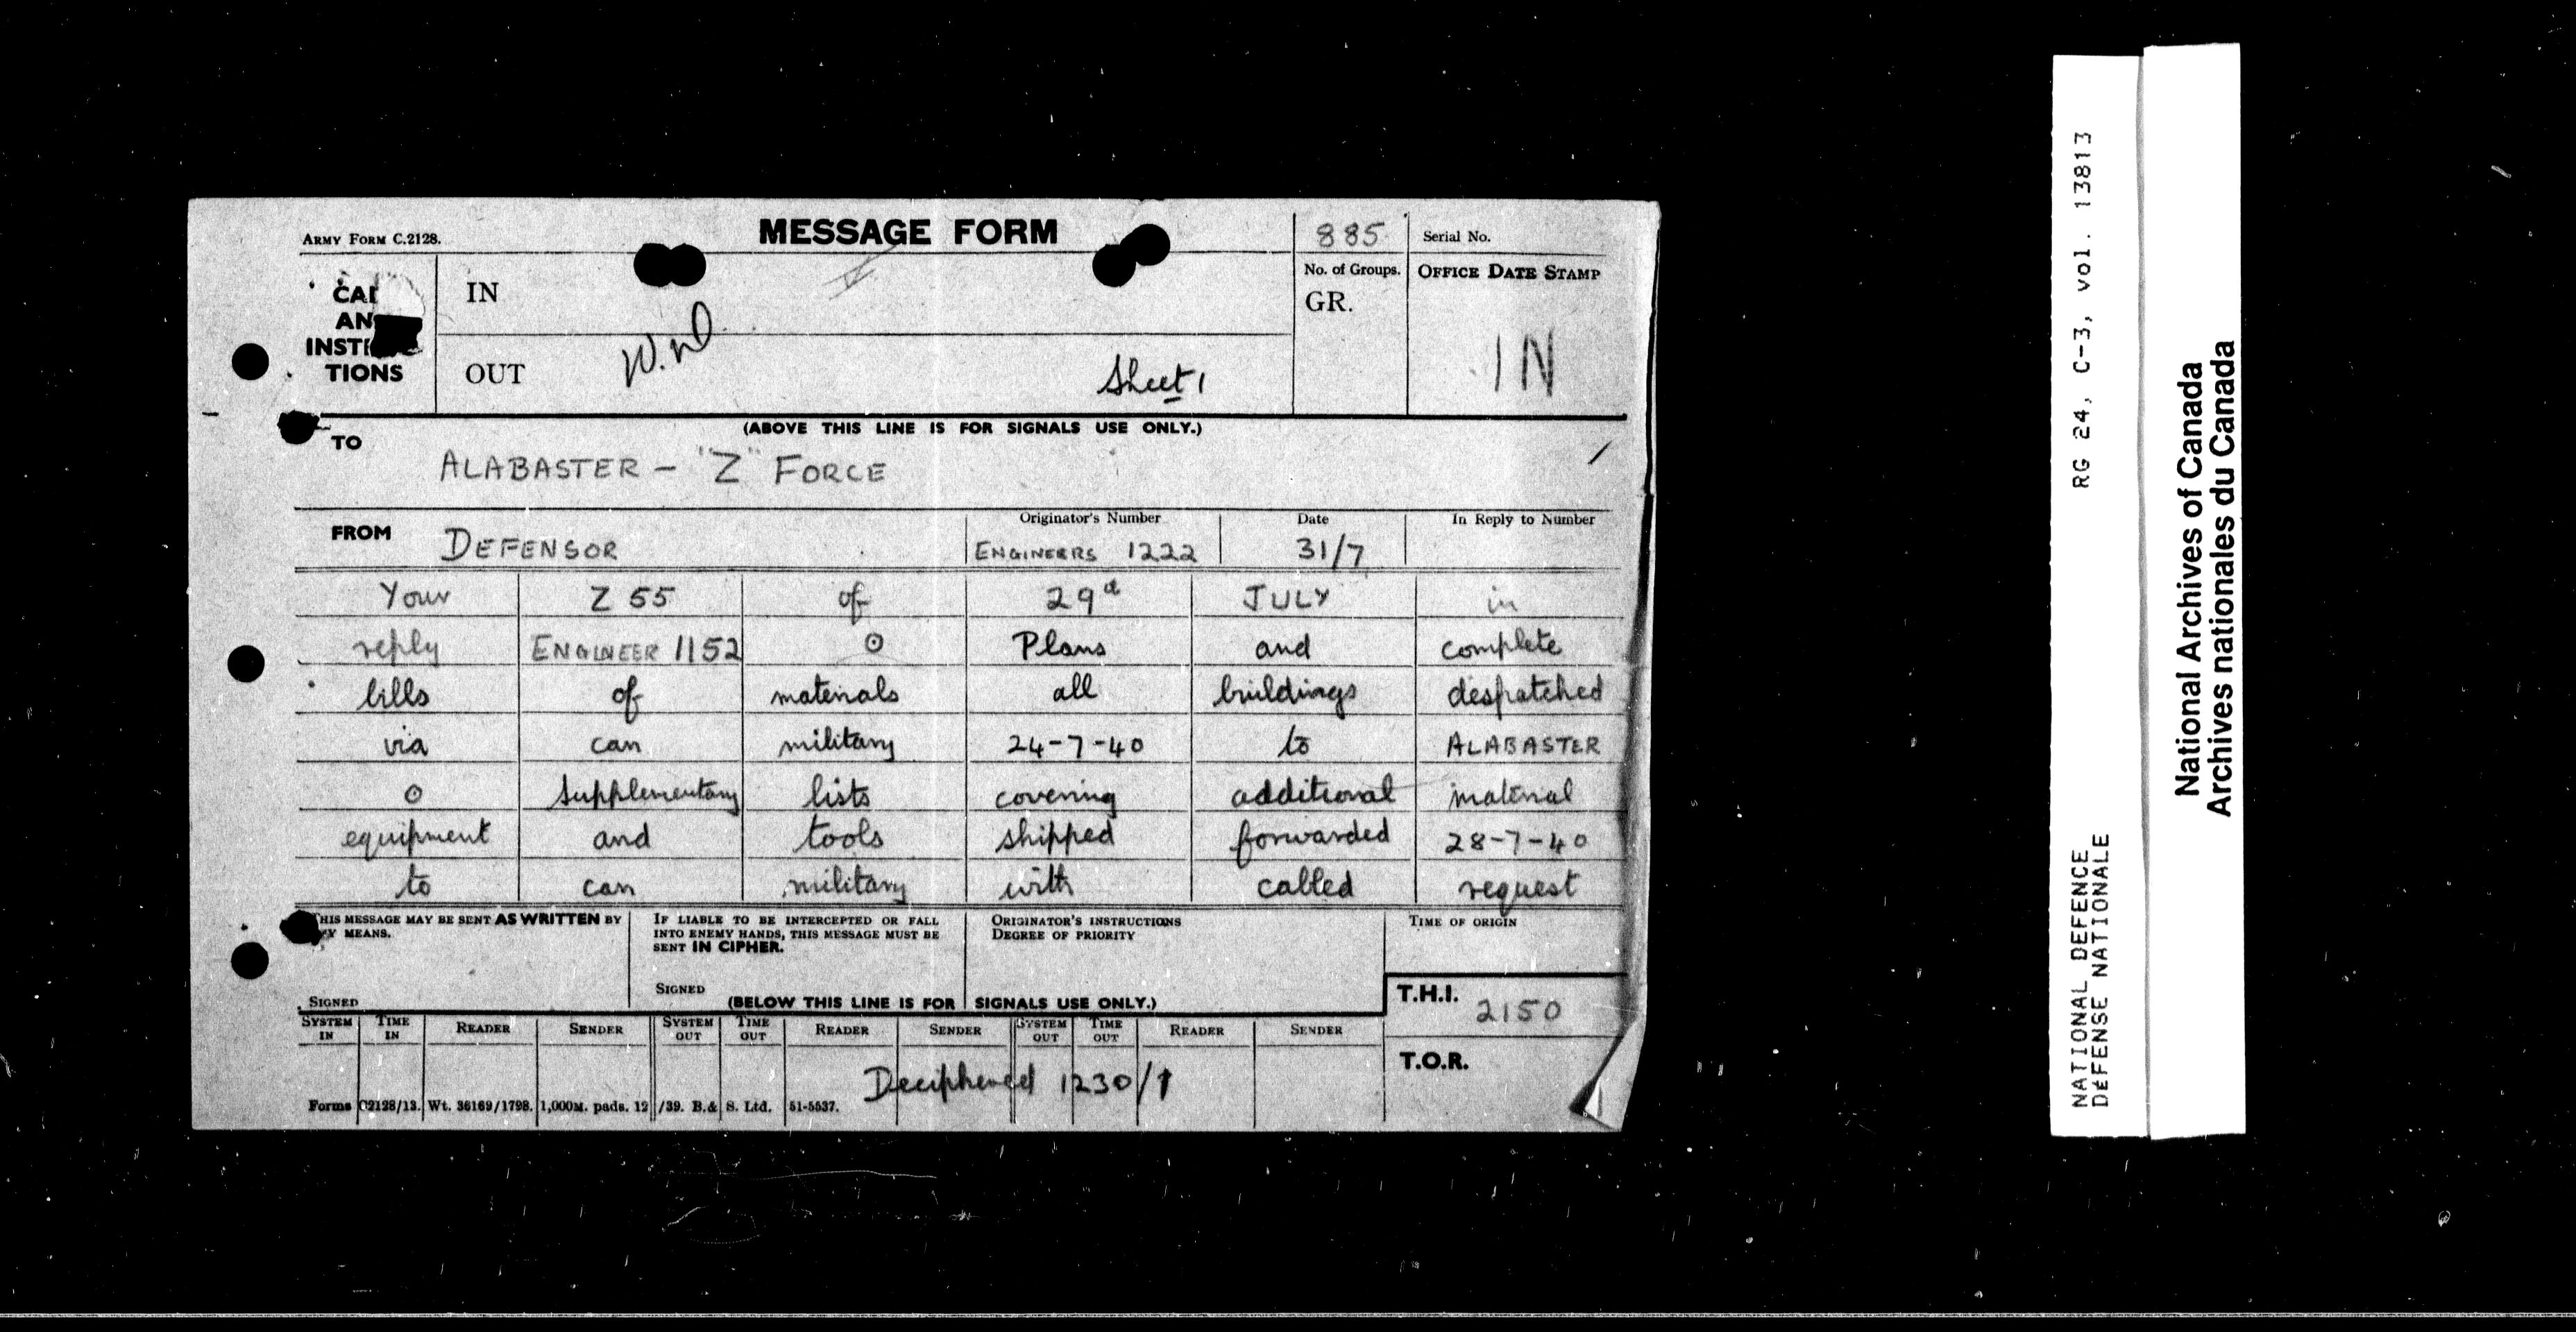 ARMY FORM C.2128.
MESSAGE FORM
885
Serial No.
No. of Groups.
GR.
OFFICE DATE STAMP
IN
IN
OUT
TIONS
Sheet 1
(ABOVE THIS LINE IS FOR SIGNALS USE ONLY.)
TO
ALABASTER - "Z" FORCE
FROM
DEFENSOR
Originator's Number
ENGINEERS 1222
Date
31/7
In Reply to Number
Your Z 55 of 29th JULY in
reply ENGINEER 1152 ⊙ Plans and complete
bills of materials all buildings despatched
via can military 24-7-40 to ALABASTER
o Supplementary lists covering additional material
equipment and tools shipped forwarded 28-7-40
to can military with cabled request
THIS MESSAGE MAY BE SENT AS WRITTEN BY
MEANS.
SIGNED
IF LIABLE TO BE INTERCEPTED OR FALL
INTO ENEMY HANDS, THIS MESSAGE MUST BE
SENT IN CIPHER.
SIGNED
ORIGINATOR'S INSTRUCTIONS
DEGREE OF PRIORITY
TIME OF ORIGIN
(BELOW THIS LINE IS FOR SIGNALS USE ONLY.)
T.H.I. 2150
T.O.R.
SYSTEM IN TIME IN READER SENDER SYSTEM OUT TIME OUT READER SENDER SYSTEM OUT TIME OUT READER SENDER
Deciphered 1230/1
Forms C2128/13. Wt. 36169/1798. 1,000M. pads. 12/39. B.& S. Ltd. 51-5537.
NATIONAL DEFENCE RG 24, C-3, vol. 13813
DÉFENSE NATIONALE
National Archives of Canada
Archives nationales du Canada